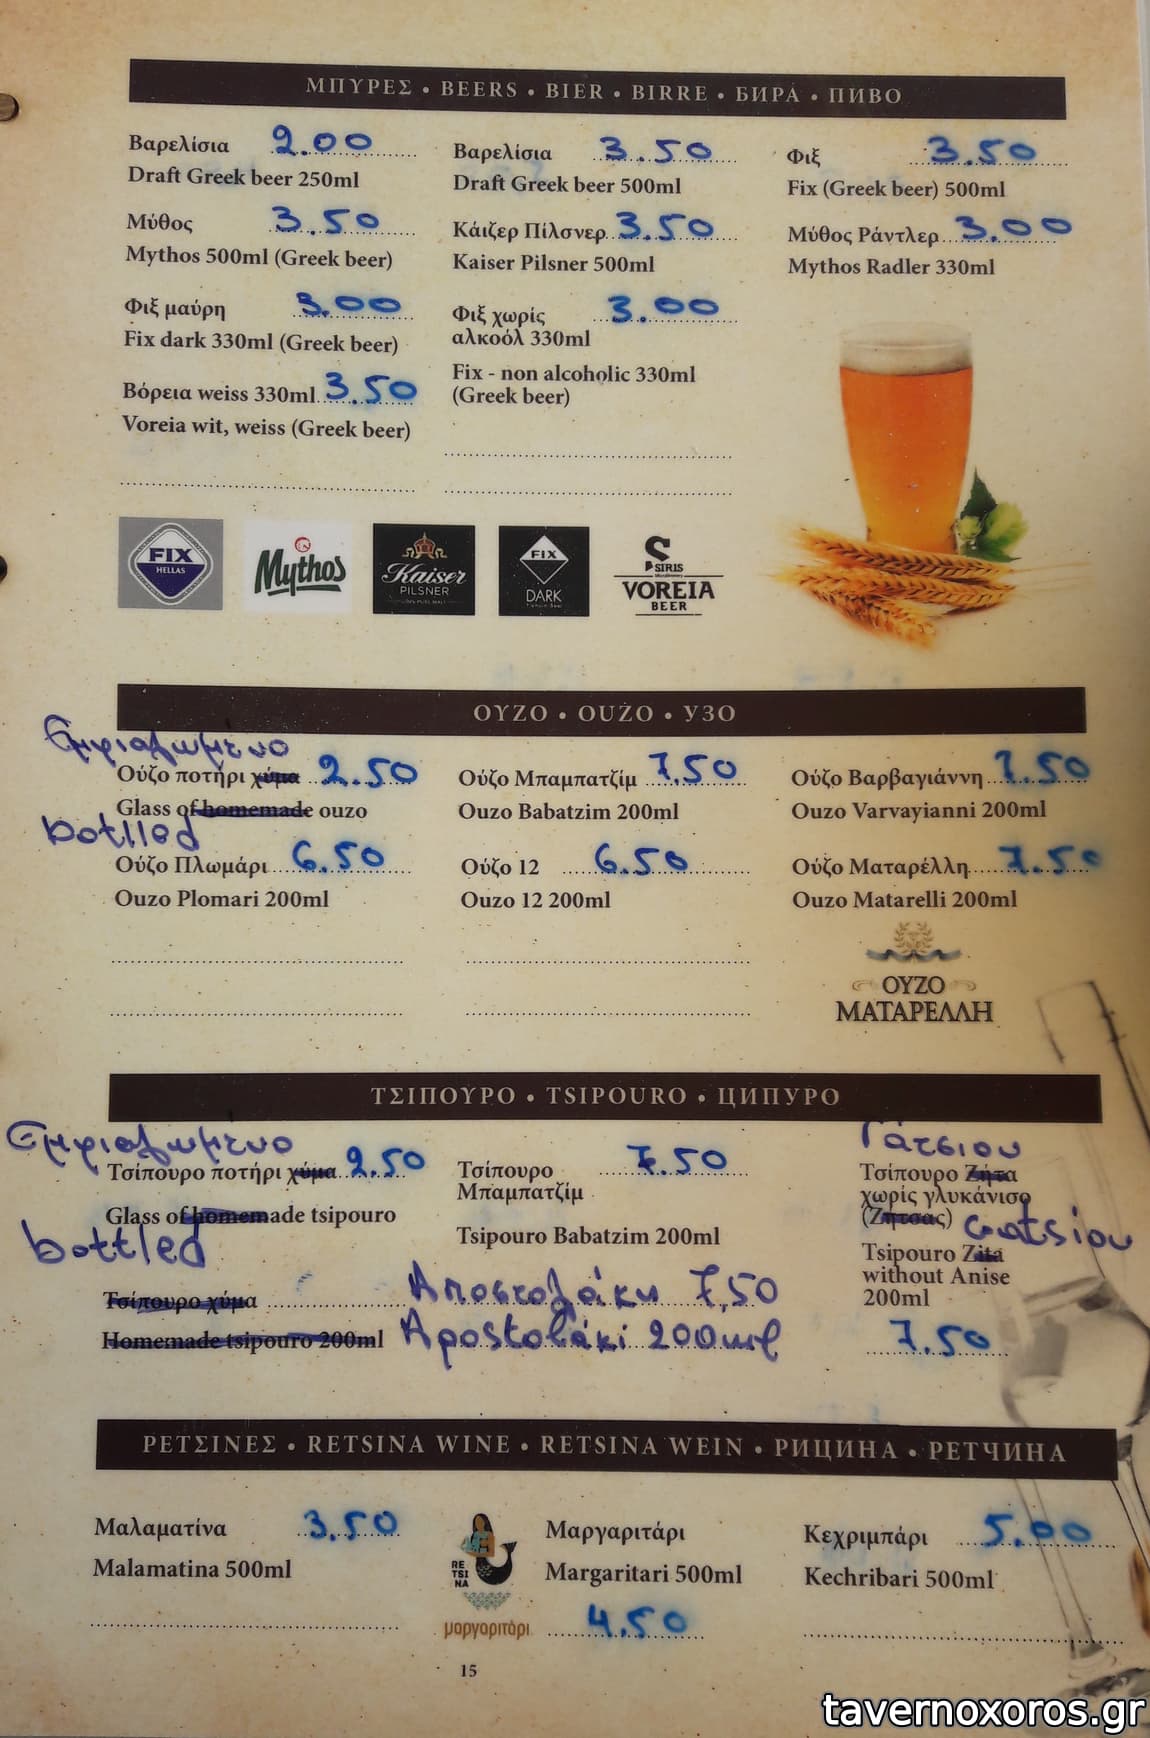 ΜΠΥΡΕΣ • BEERS • BIER • BIRRE • БИРА • ПИВО
Βαρελίσια 2.00
Draft Greek beer 250ml
Βαρελίσια 3.50
Draft Greek beer 500ml
Φιξ 3.50
Fix (Greek beer) 500ml
Μύθος 3.50
Mythos 500ml (Greek beer)
Κάιζερ Πίλσνερ 3.50
Kaiser Pilsner 500ml
Μύθος Ράντλερ 3.00
Mythos Radler 330ml
Φιξ μαύρη 3.00
Fix dark 330ml (Greek beer)
Φιξ χωρίς 3.00
αλκοόλ 330ml
Fix - non alcoholic 330ml
(Greek beer)
Βόρεια weiss 330ml 3.50
Voreia wit, weiss (Greek beer)
FIX
HELLAS
Mythos
Kaiser
PILSNER
FIX
DARK
SIRIS
VOREIA
BEER
ΟΥΖΟ • OUZO • УЗО
Εμφιαλωμένο
Ούζο ποτήρι χύμα 2.50
Glass of homemade ouzo
bottled
Ούζο Μπαμπατζίμ 7.50
Ouzo Babatzim 200ml
Ούζο Βαρβαγιάννη 7.50
Ouzo Varvayianni 200ml
Ούζο Πλωμάρι 6.50
Ouzo Plomari 200ml
Ούζο 12 6.50
Ouzo 12 200ml
Ούζο Ματαρέλλη 7.50
Ouzo Matarelli 200ml
ΟΥΖΟ
ΜΑΤΑΡΕΛΛΗ
ΤΣΙΠΟΥΡΟ • TSIPOURO • ЦИПУРО
Εμφιαλωμένο
Τσίπουρο ποτήρι χύμα 2.50
Glass of homemade tsipouro
bottled
Τσίπουρο 7.50
Μπαμπατζίμ
Tsipouro Babatzim 200ml
Γάτσιου
Τσίπουρο Ζήτα
χωρίς γλυκάνισο
(Ζητσας) Gatsiou
Tsipouro Zita
without Anise
200ml
7.50
Τσίπουρο χύμα Αποστολάκη 7,50
Homemade tsipouro 200ml Apostolaki 200ml
ΡΕΤΣΙΝΕΣ • RETSINA WINE • RETSINA WEIN • РИЦИНА • РЕТЧИНА
Μαλαματίνα 3.50
Malamatina 500ml
RE
TSI
NA
μαργαριτάρι
Μαργαριτάρι
Margaritari 500ml
4.50
Κεχριμπάρι 5.00
Kechribari 500ml
15
tavernoxoros.gr